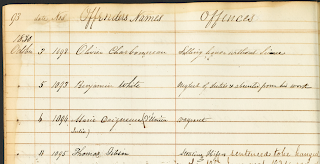 98 Date No. Offenders Names Offences
1838
Octber 2 1892 Olivier Charbonneau Selling liquor without license
5 1893 Benjamin White Neglect of duties & absentis from his work
6 1894 Marie
vagrant
11 1895 Thomas Stealing sentenced to be hanged